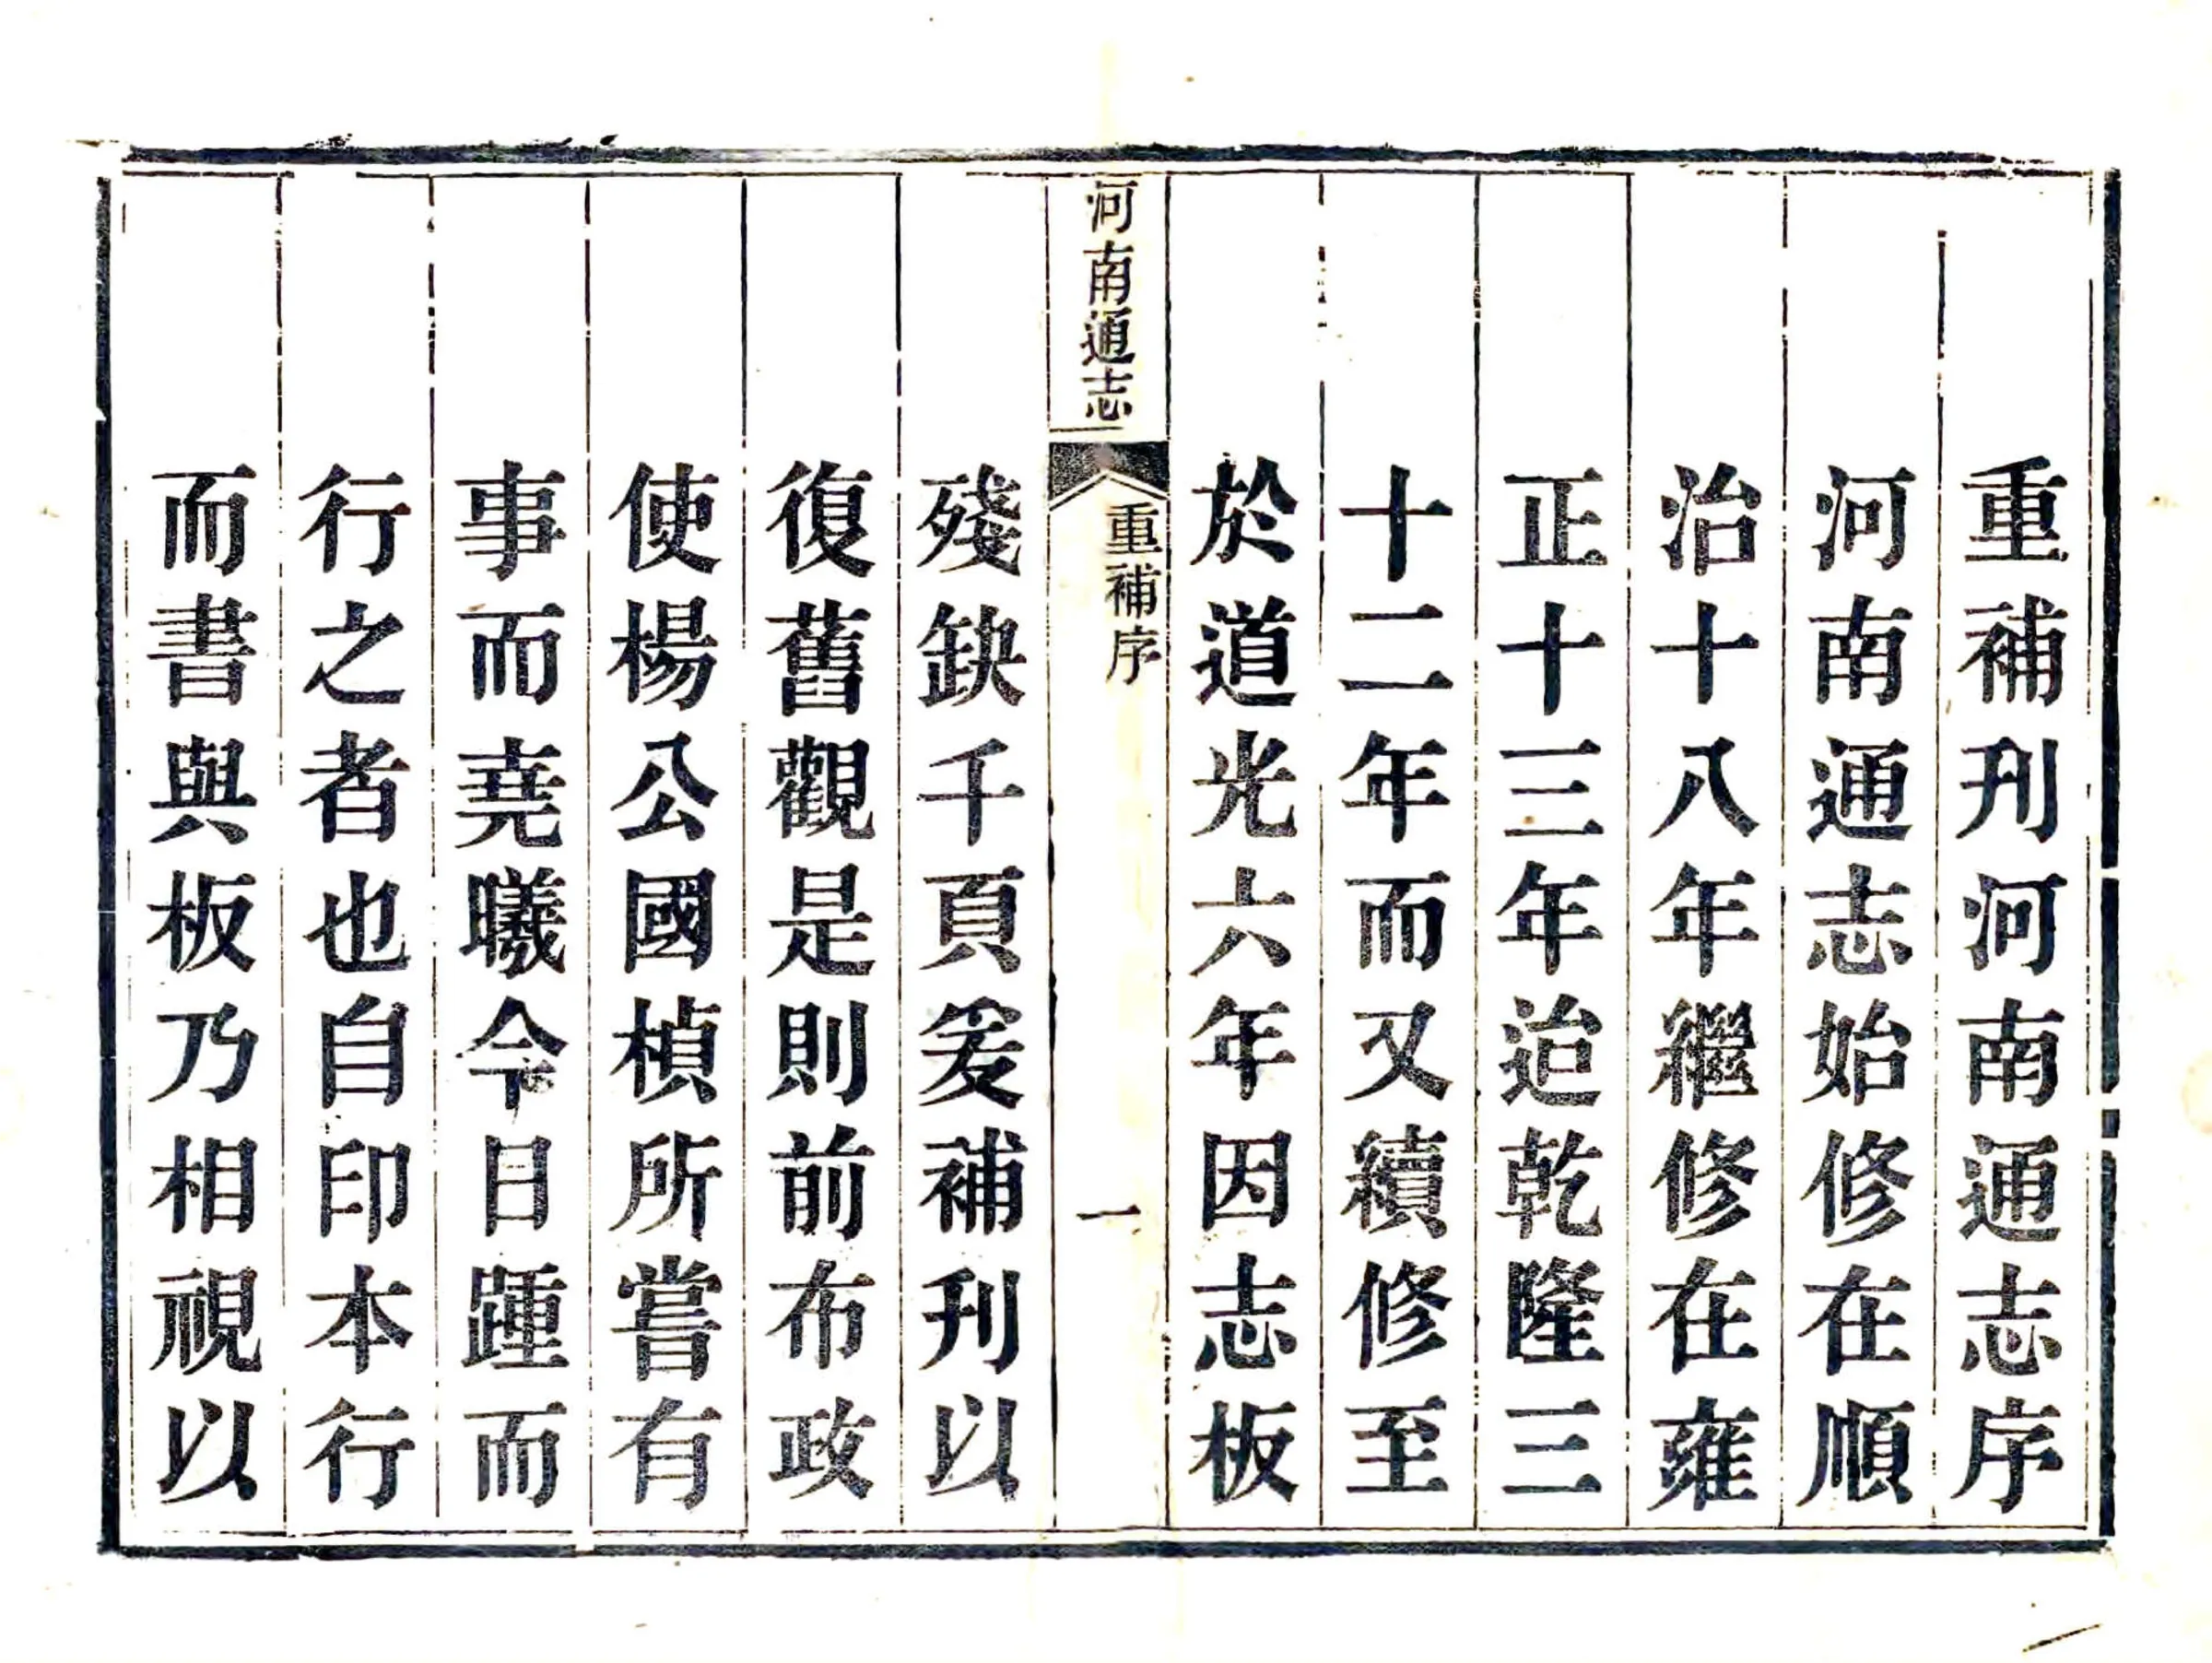 重補刊河南通志序
河南通志始修在順
治十八年繼修在雍
正十三年迨乾隆三
十二年而又續修至
於道光六年因志板
河南通志
重補序
一
殘缺千頁爰補刊以
復舊觀是則前布政
使楊公國楨所嘗有
事而堯曦今目踵而
行之者也自印本行
而書與板乃相視以